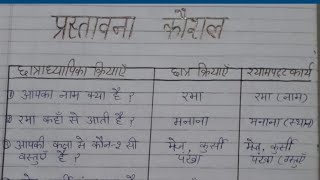 प्रस्तावना कौशल
छात्राध्यापिका क्रियाएँ छात्र क्रियाएँ श्यामपट्ट कार्य
आपका नाम क्या है ? रमा रमा (नाम)
रमा कहाँ से आती है ? मनाना मनाना (स्थान)
आपकी कक्षा में कौन-2 सी मेज, कुर्सी मेज, कुर्सी
वस्तुएँ हैं ? पंखा पंखा (वस्तुएँ